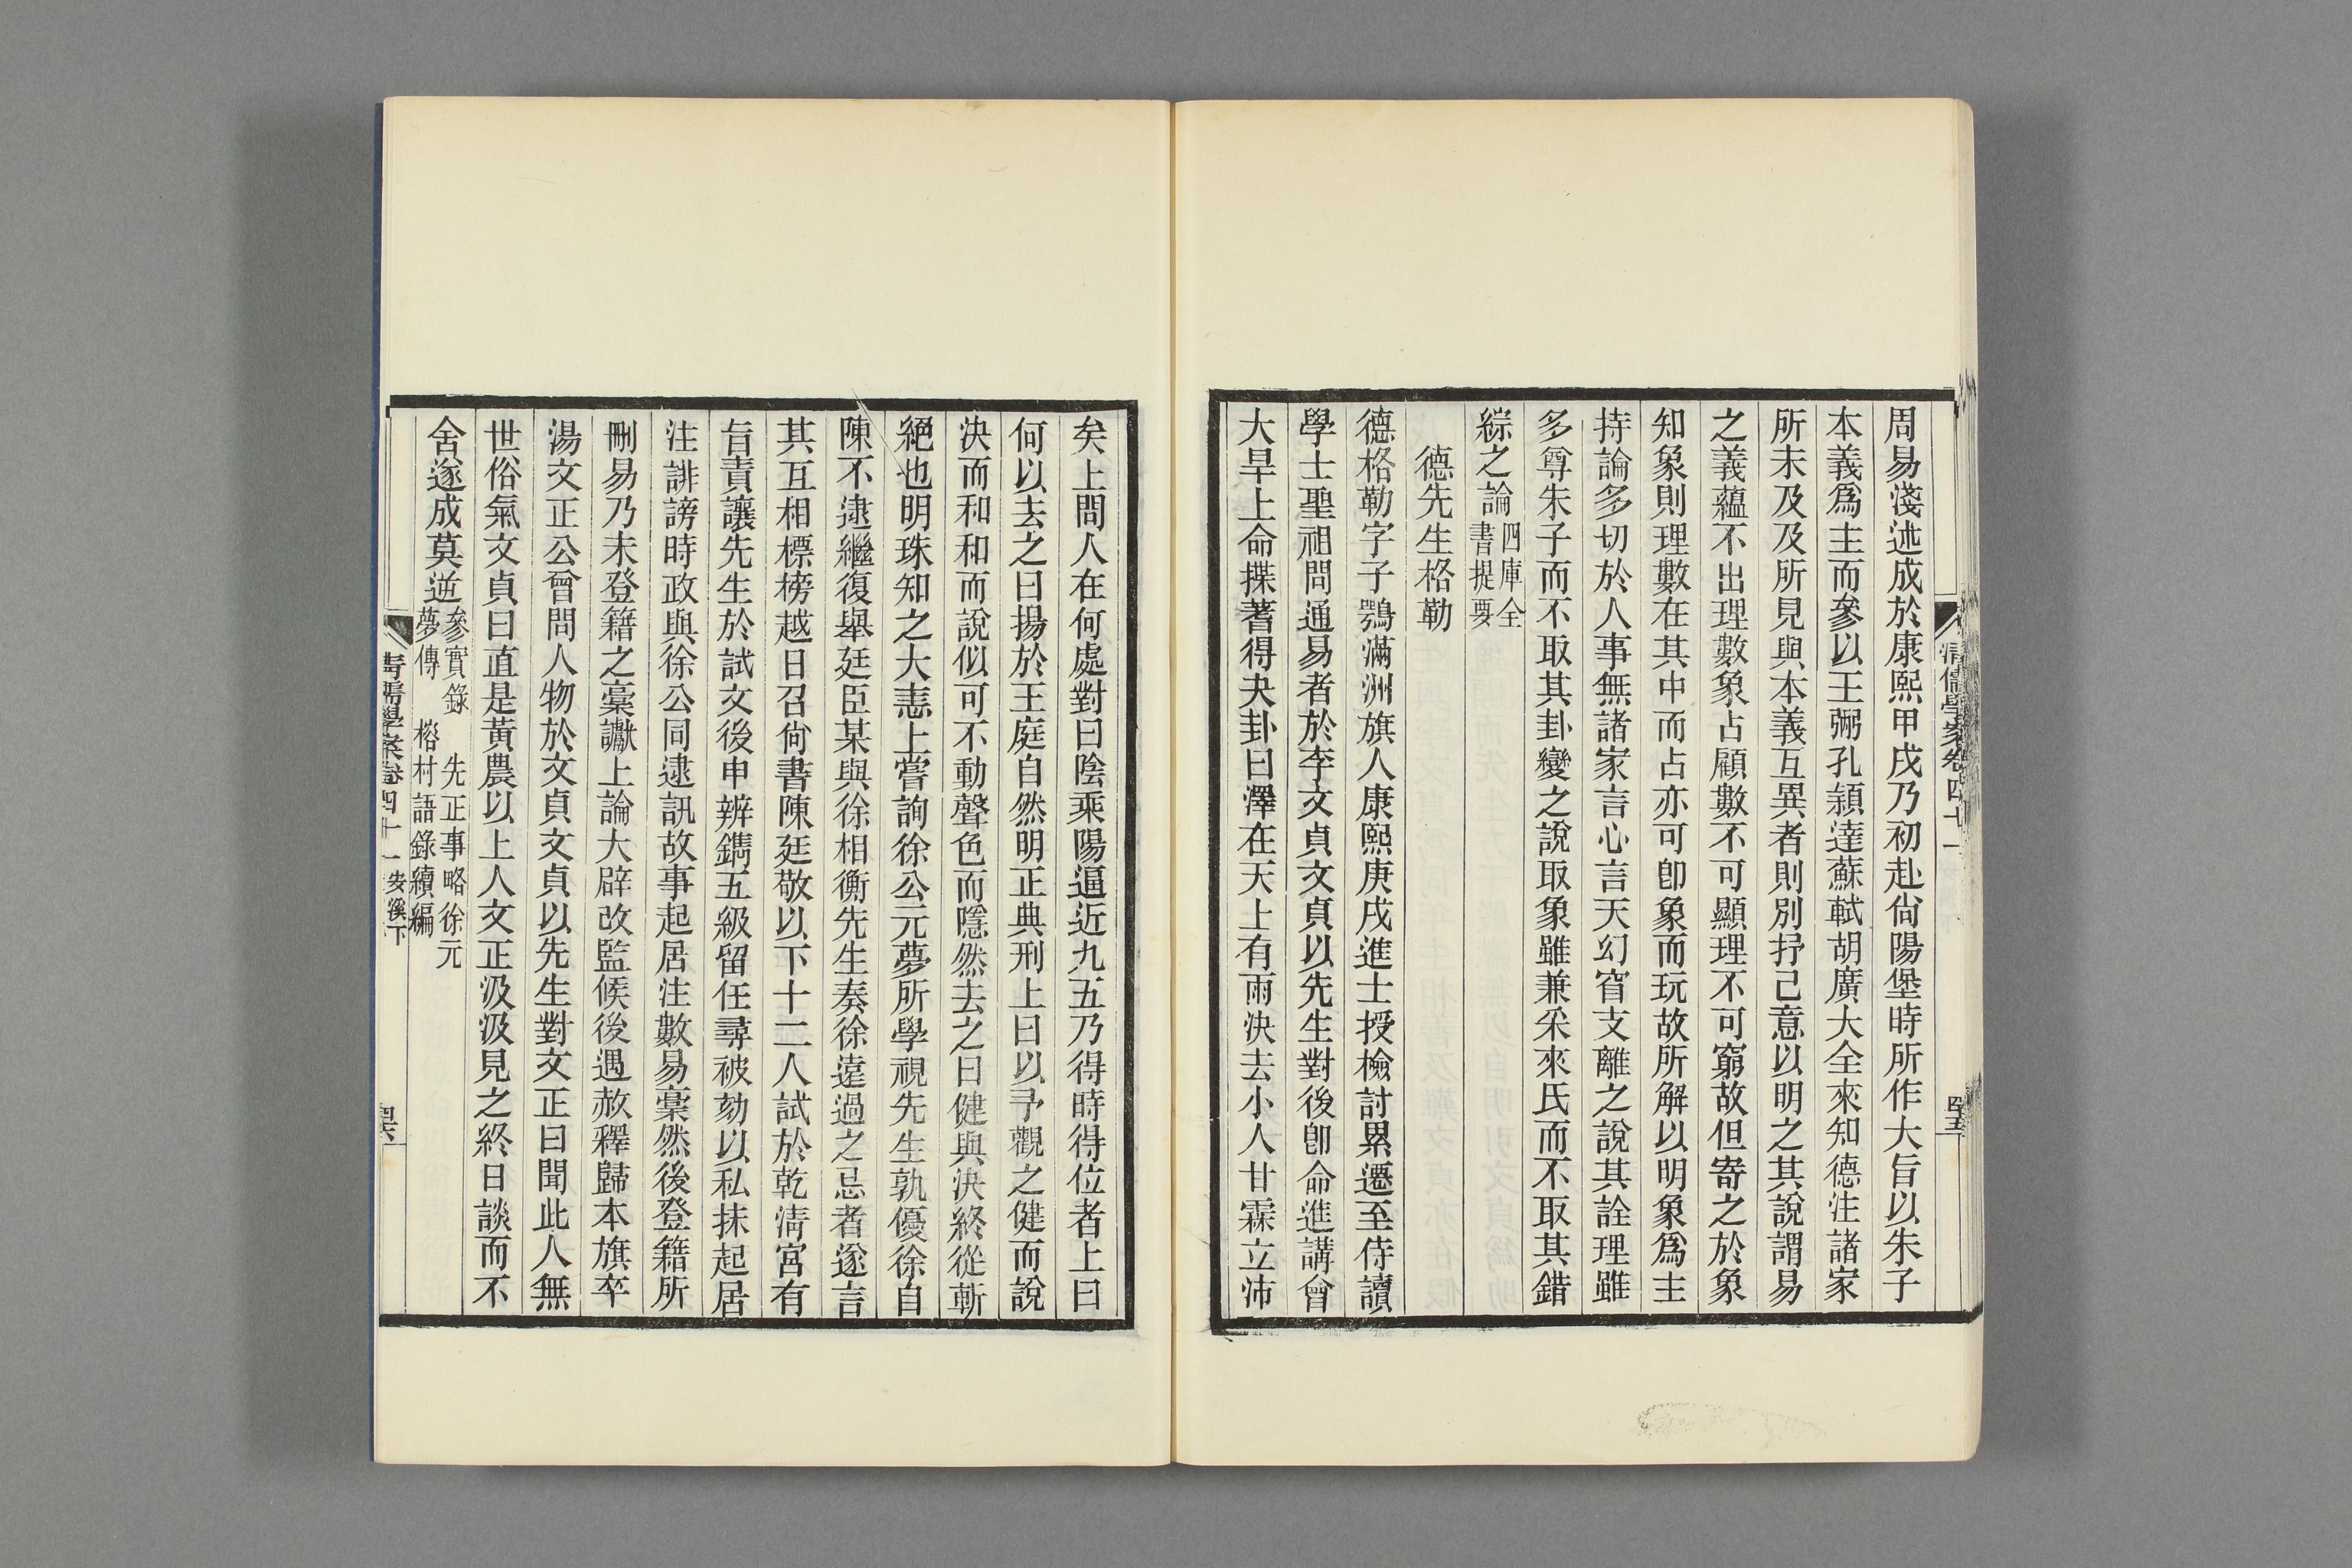 清儒學案卷四十一
四五
周易淺述成於康熙甲戌乃初赴尙陽堡時所作大旨以朱子
本義爲主而參以王弼孔穎達蘇軾胡廣大全來知德注諸家
所未及及所見與本義互異者則別抒己意以明之其說謂易
之義蘊不出理數象占顧數不可顯理不可窮故但寄之於象
知象則理數在其中而占亦可卽象而玩故所解以明象爲主
持論多切於人事無諸家言心言天幻窅支離之說其詮理雖
多尊朱子而不取其卦變之說取象雖兼采來氏而不取其錯
綜之論四庫全
書提要
德先生格勒
德格勒字子鶚滿洲旗人康熙庚戌進士授檢討累遷至侍讀
學士聖祖問通易者於李文貞文貞以先生對後卽命進講會
大旱上命揲蓍得夬卦曰澤在天上有雨決去小人甘霖立沛
矣上問人在何處對曰陰乘陽逼近九五乃得時得位者上曰
何以去之曰揚於王庭自然明正典刑上曰以予觀之健而說
決而和和而說似可不動聲色而隱然去之曰健與決終從斬
絕也明珠知之大恚上嘗詢徐公元夢所學視先生孰優徐自
陳不逮繼復舉廷臣某與徐相衡先生奏徐遠過之忌者遂言
其互相標榜越日召尙書陳廷敬以下十二人試於乾淸宮有
旨責讓先生於試文後申辨鐫五級留任尋被劾以私抹起居
注誹謗時政與徐公同逮訊故事起居注數易稾然後登籍所
刪易乃未登籍之稾讞上論大辟改監候後遇赦釋歸本旗卒
湯文正公曾問人物於文貞文貞以先生對文正曰聞此人無
世俗氣文貞曰直是黃農以上人文正汲汲見之終日談而不
舍遂成莫逆參實錄　先正事略徐元
夢傳　榕村語錄續編
清儒學案卷四十一　安溪下
四六